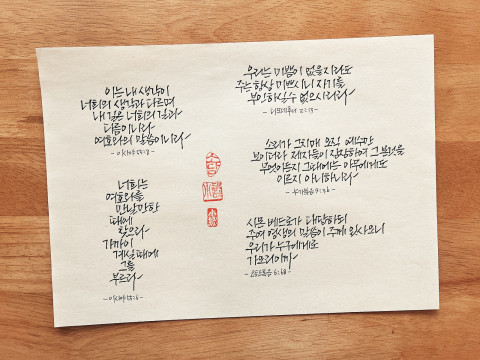 이는 내 생각이
너희의 생각과 다르며
내 길은 너희의 길과
다름이니라
여호와의 말씀이니라
- 이사야 55:8 -
너희는
여호와를
만날 만한
때에
찾으라
가까이
계실 때에
그를
부르라
- 이사야 55:6 -
우리는 미쁨이 없을지라도
주는 항상 미쁘시니 자기를
부인하실 수 없으시리라
- 디모데후서 2:13 -
소리가 그치매 오직 예수만
보이더라 제자들이 잠잠하여 그 본 것을
무엇이든지 그때에는 아무에게도
이르지 아니하니라
- 누가복음 9:36 -
시몬 베드로가 대답하되
주여 영생의 말씀이 주께 있사오니
우리가 누구에게로
가오리이까
- 요한복음 6:68 -